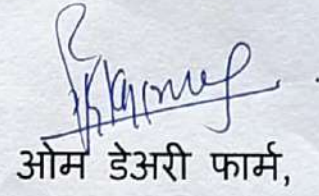 ओम डेअरी फार्म,